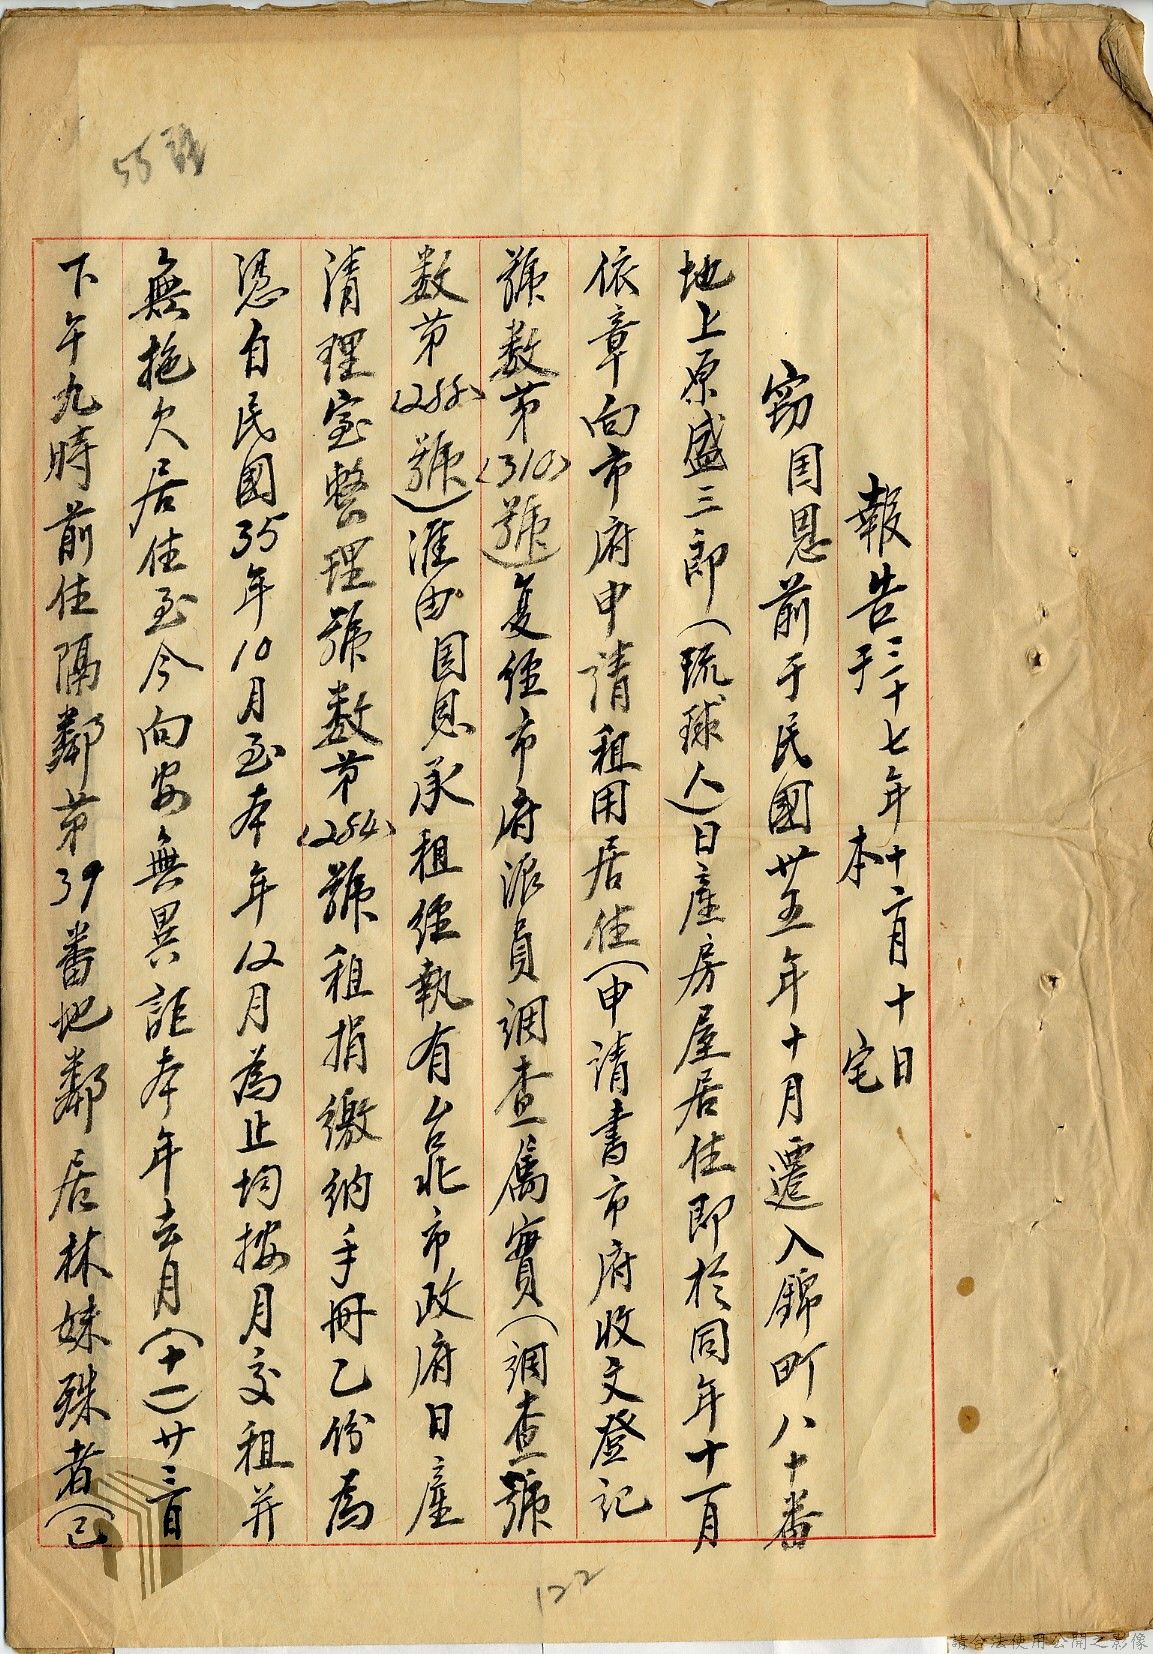 報告 三十七年十二月十日
于本宅
竊國恩前于民國卅五年十月遷入錦町八十番
地上原盛三郎（琉球人）日產房屋居住即於同年十一月
依章向市府申請租用居住（申請書市府收文登記
號數第（310）號）复經市府派員調查屬實（調查號
数第（255）號）准由國恩承租經執有台北市政府日產
清理室整理號数第（254）號租捐繳納手冊乙份為
憑自民國35年10月至本年12月為止均按月交租并
無拖欠居住至今向安無異詎本年去月（十一）廿三日
下午九時前住隔鄰第39番地鄰居林妹殊者（已
122
請合法使用公開之影像